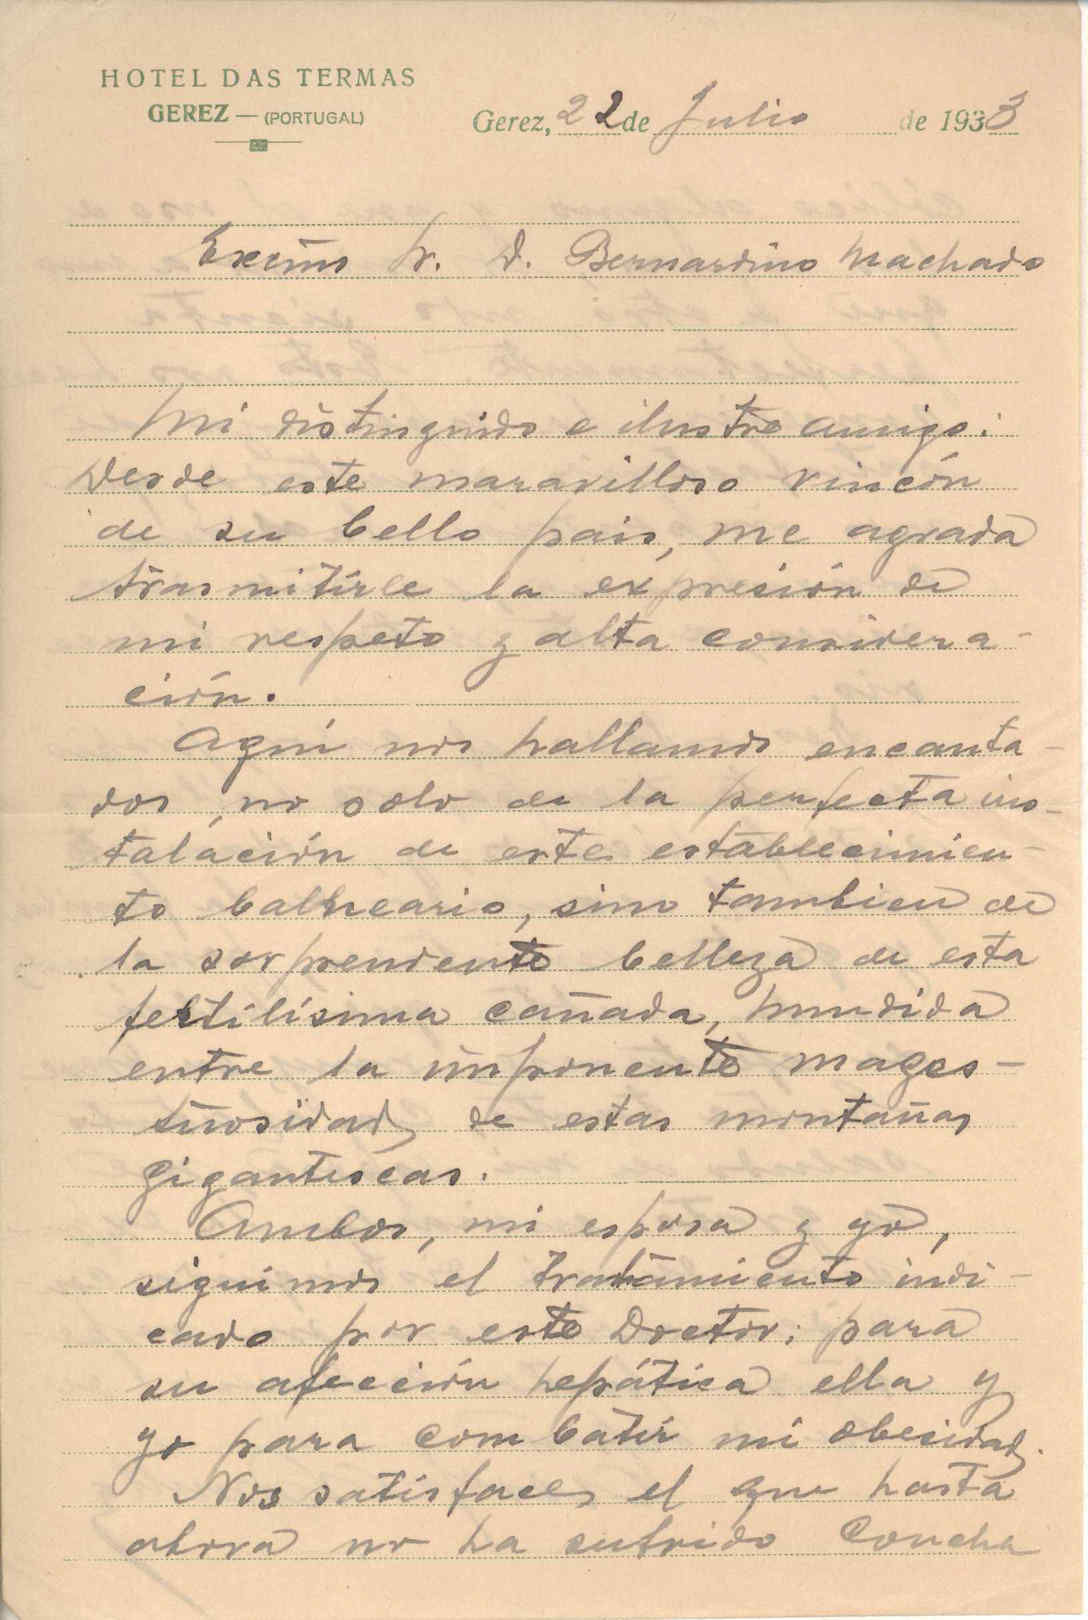 HOTEL DAS TERMAS
GEREZ — (PORTUGAL)
Gerez, 22 de Julio de 1933
Exčmo Sr. D. Bernardino Machado
Mi distinguido e ilustre amigo:
Desde este maravilloso rincón
de su bello pais, me agrada
trasmitirle la expresión de
mi respeto y alta considera-
ción.
Aquí nos hallamos encanta-
dos, no solo de la perfecta ins-
talación de este establecimien-
to balneario, sino tambien de
la sorprendente belleza de esta
fertilísima cañada, hundida
entre la imponente mages-
tuosidad de estas montañas
gigantescas.
Ambos, mi esposa y yo,
seguimos el tratamiento indi-
cado por este Doctor: para
su afección hepática ella y
yo para combatir mi obesidad.
Nos satisface el que hasta
ahora no ha sufrido Concha